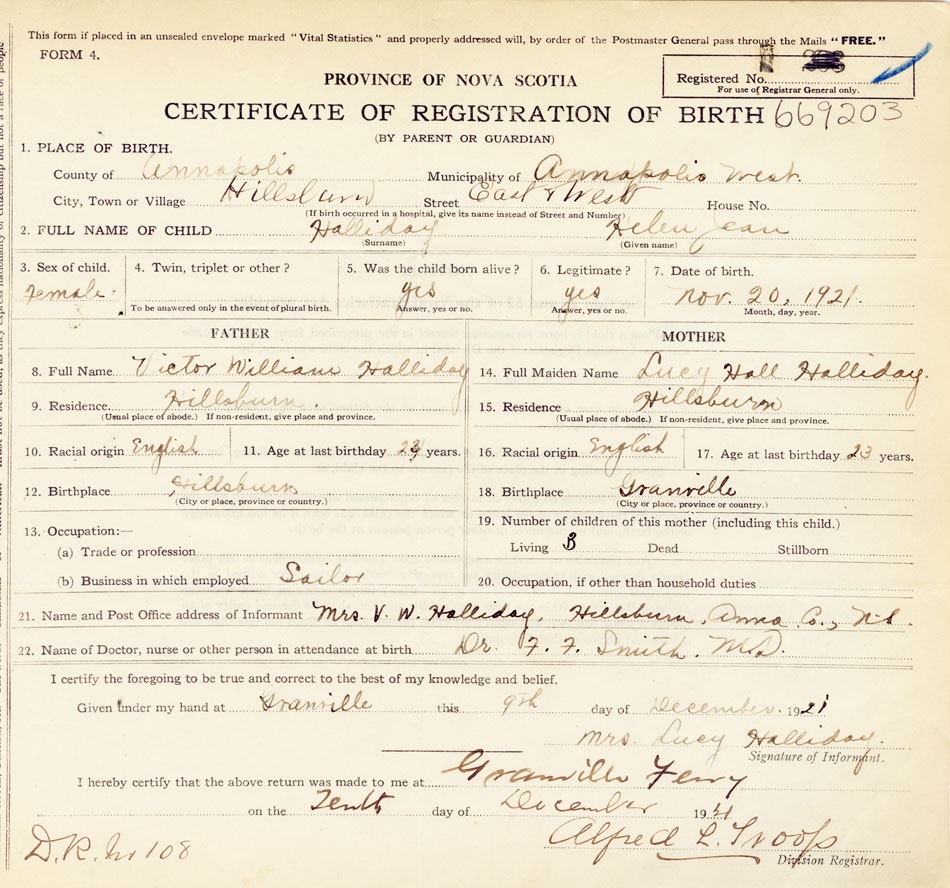 This form if placed in an unsealed envelope marked "Vital Statistics" and properly addressed will, by order of the Postmaster General pass through the Mails "FREE."
FORM 4.
Registered No.
For use of Registrar General only.
PROVINCE OF NOVA SCOTIA
CERTIFICATE OF REGISTRATION OF BIRTH 669203
(BY PARENT OR GUARDIAN)
1. PLACE OF BIRTH.
County of Annapolis Municipality of Annapolis West.
City, Town or Village Hillsburn Street East & West House No.
(If birth occurred in a hospital, give its name instead of Street and Number)
2. FULL NAME OF CHILD Halliday Helen Jean
(Surname) (Given name)
3. Sex of child. 4. Twin, triplet or other? 5. Was the child born alive? 6. Legitimate? 7. Date of birth.
Female. yes yes Nov. 20, 1921.
To be answered only in the event of plural birth. Answer, yes or no. Answer, yes or no. Month, day, year.
FATHER MOTHER
8. Full Name Victor William Halliday 14. Full Maiden Name Lucy Hall Halliday.
9. Residence Hillsburn. 15. Residence Hillsburn
(Usual place of abode.) If non-resident, give place and province. (Usual place of abode.) If non-resident, give place and province.
10. Racial origin English 11. Age at last birthday years. 16. Racial origin English 17. Age at last birthday 23 years.
12. Birthplace Hillsburn 18. Birthplace Granville
(City or place, province or country.) (City or place, province or country.)
13. Occupation:— 19. Number of children of this mother (including this child.)
(a) Trade or profession Living 3 Dead Stillborn
(b) Business in which employed Sailor 20. Occupation, if other than household duties
21. Name and Post Office address of Informant Mrs. V. W. Halliday, Hillsburn, Anna Co., N.S.
22. Name of Doctor, nurse or other person in attendance at birth Dr. F. F. Smith. M.D.
I certify the foregoing to be true and correct to the best of my knowledge and belief.
Given under my hand at Granville this 9th day of December. 1921
Mrs. Lucy Halliday.
Signature of Informant.
I hereby certify that the above return was made to me at Granville Ferry
on the Tenth day of December 1921
Alfred L. Troop
Division Registrar.
D.R. No 108